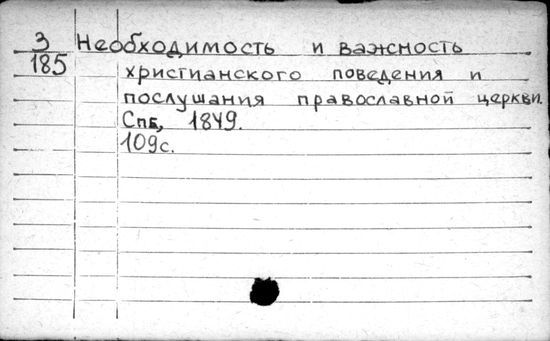 3 Необходимость и важность
185 христианского поведения и
послушания православной церкви.
Спб, 1849.
109с.